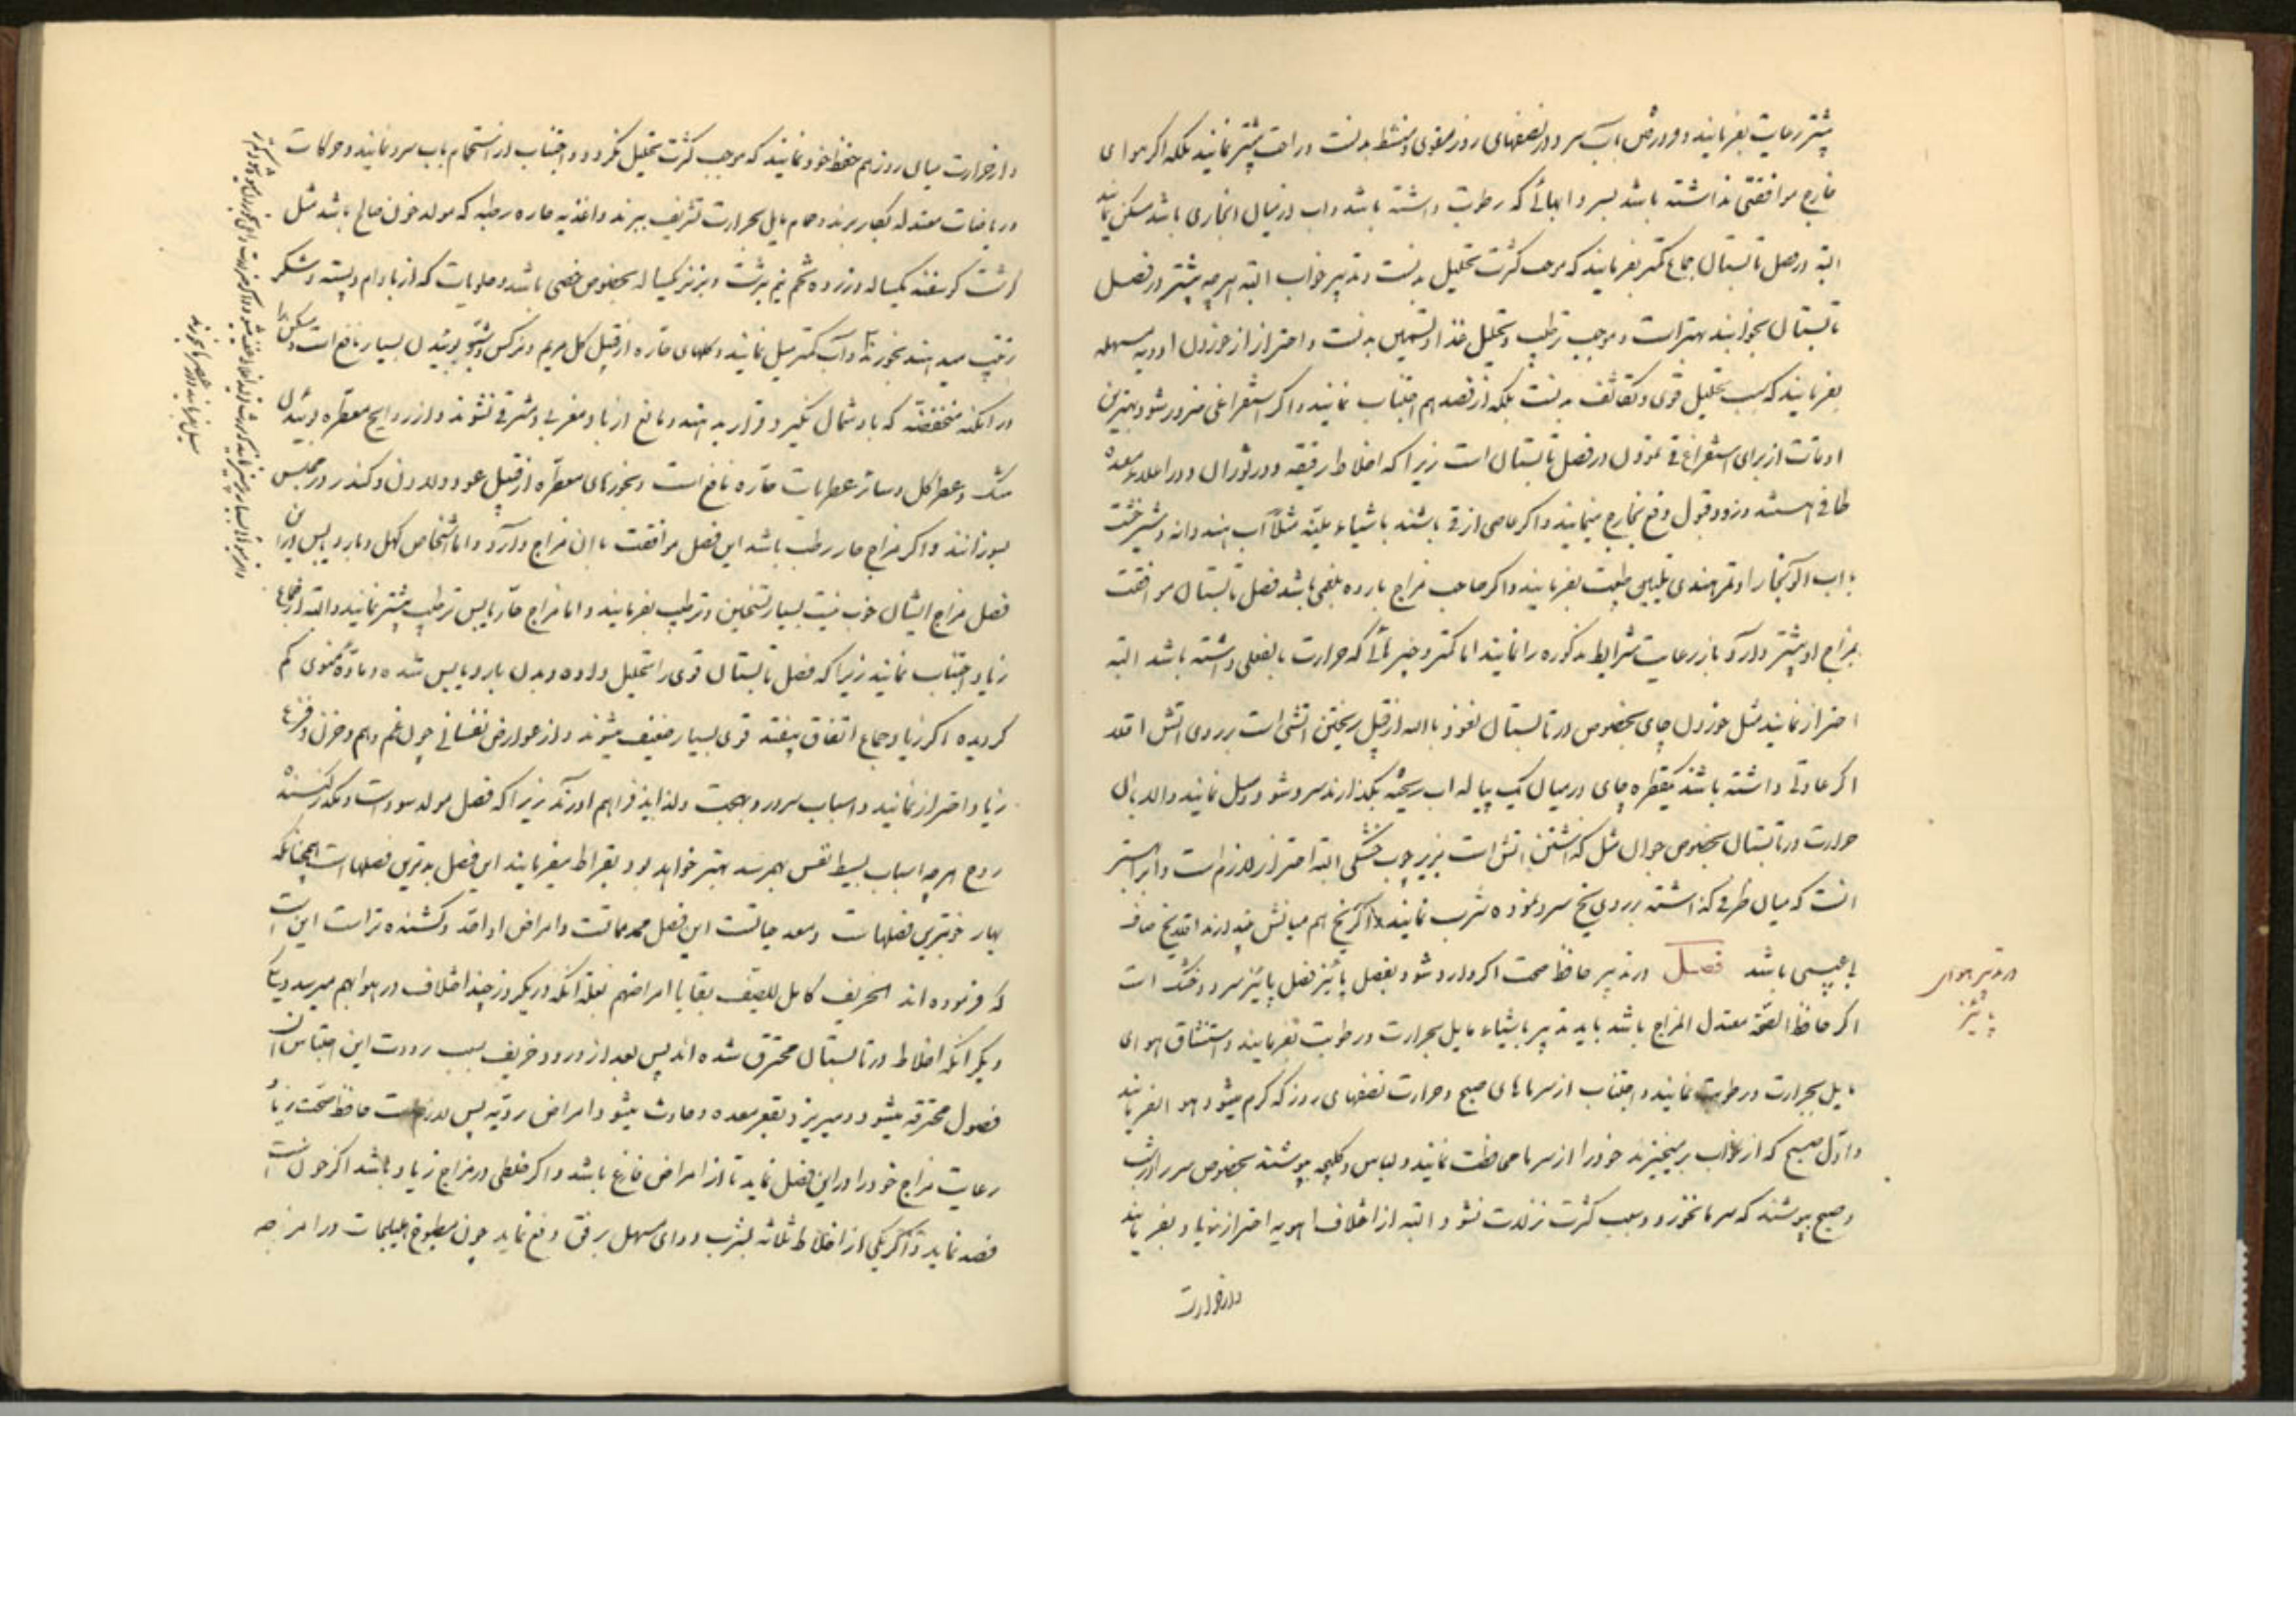 بیشتر رعایت بفرمایند و ورود در آب سرد در نصفهای روز مقوی و منشط بدنست و راحت بیشتر نمایند بلکه اگر هوای
خارج موافقتی نداشته باشد بسردابهائے که رطوبت داشته باشد و اب در میان انجاری باشد مسکن نمایند
البته در فصل تابستان جماع کمتر بفرمایند که موجب کثرت تحلیل بدنست و تدبیر خواب البته هر چه بیشتر در فصل
تابستان بخوابند بهتر است و موجب ترطیب و تحلیل غذا و تسمین بدنست و احتراز از خوردن ادویه مسهله
بفرمایند که سبب تحلیل قوی و تکاثف بدنست بلکه از فصد هم اجتناب نمایند و اگر استفراغی ضرور شود بهترین
اوقات از برای استفراغ قی نمودن در فصل تابستان است زیرا که اخلاط رقیقه و در ثوران و در اعلاء معده
طافی هستند و زود قبول دفع بخارج مینمایند و اگر عاصی از قی باشند باشیاء ملینه مثلا آب هندوانه و شیرخشت
با اب الو بخارا و تمر هندی تلیین طبیعت بفرمایند و اگر صاحب مزاج بارده بلغمی باشد فصل تابستان موافقت
بمزاج او بیشتر دارد باز رعایت شرایط مذکوره را نمایند اما کمتر و چیزهائے که حرارت بالفعلی داشته باشد البته
احتراز نمایند مثل خوردن چای بخصوص در تابستان نعوذ بالله از قبیل ریختن اتشی است بر روی اتش اقلا
اگر عادتی داشته باشند یکقطره چای در میان یک پیاله اب ریخته بگذارند سرد شود و میل نمایند و الا بان
حرارت در تابستان بخصوص جوان مثل گذاشتن اتش است بزیر چوب خشکی البته احتراز لازم است و
انست که میان ظرفی گذاشته بر روی یخ سرد نموده شرب نمایند و اگر یخ هم میانش میاندازند اقلا یخ صاف
با عیبی باشد فصل در تدبیر حافظ صحت اگر وارد شود بفصل پائیز فصل پائیز سرد و خشک است
در تدبیر هوای
پائیز
اگر حافظ الصحة معتدل المزاج باشد باید تدبیر باشیاء مایل بحرارت و رطوبت بفرمایند و استنشاق هوای
مایل بحرارت و رطوبت نمایند و اجتناب از سرماهای صبح و حرارت نصفهای روز که گرم میشود هوا بفرمایند
و اول صبح که از خواب برمیخیزند خود را از سرما محافظت نمایند و لباس و کلیجه بپوشند بخصوص سر را در شب
و صبح بپوشند که سرما نخورد و سبب کثرت نزلات نشود البته از اختلاف اهویه احتراز زیاد بفرمایند
و از حرارت
و از حرارت میان روز هم حفظ خود نمایند که موجب کثرت تحلیل نگردد و اجتناب در استحمام باب سرد نمایند و حرکات
و ریاضات معتدله بکار برند و حمام مایل بحرارت تشریف ببرند و اغذیه حاره رطبه که مولد خون صالح باشد مثل
گوشت گوسفند یکساله و زرده تخم نیم برشت و بزنر یکساله بخصوص خصی باشد و حلویات که از بادام و پسته و شکر
ترتیب میدهند بخورند و آب کمتر میل نمایند و گلهای حاره از قبیل گل مریم و نرگس و شب بو بوئیدن بسیار نافع است و مسکن را
در امکنه منخفضه که باد شمال نگیرد قرار بدهند و مانع از باد مغربی و مشرقی نشوند و از روایح معطره بوئیدن
مشک و عطر گل و سائر عطریات حاره نافع است و بخورهای معطره از قبیل عود و لادن و کندر در مجلس
بسوزانند و اگر مزاج حار رطب باشد این فصل موافقت با ان مزاج دارد و اما اشخاص کهل و بارد یابس در این
فصل مزاج ایشان خوب نیست بسیار تسخین و ترطیب بفرمایند و اما مزاج حار یابس ترطیب بیشتر نمایند و البته از جماع
زیاد اجتناب نمایند زیرا که فصل تابستان قوی را تحلیل داده و بدن بارد یابس شده و ماده منوی کم
گردیده اگر زیاد جماع اتفاق بیفتد قوی بسیار ضعیف میشوند و از عوارض نفسانی چون غم و هم و حزن و فزع
زیاد احتراز نمایند و اسباب سرور و بهجت و لذایذ فراهم اورند زیرا که فصل مولد سوداست و مکدر کننده
روح هر چه اسباب بسیط نفس بهم رسد بهتر خواهد بود بقراط میفرمایند این فصل بدترین فصلهاست همچنانکه
بهار خوبترین فصلهاست و معد حیاتست این فصل ممد مماتست و امراض او احد و کشنده تر است این است
که فرموده اند الخریف کافل للصیف بقایا امراضهم بعلة انکه در یکروز چند اختلاف در هوا بهم میرسد و یکی
دیگر انکه اخلاط در تابستان محترق شده اند پس بعد از ورود خریف بسبب برودت این احتباس ان
فضول محترقه میشود و میریزد بقعر معده و حادث میشود امراض ردیه پس لازمست حافظ صحت زیاد
رعایت مزاج خود را در این فصل نماید تا از امراض فارغ باشد و اگر خلطی در مزاج زیاد باشد اگر خون است
فصد نماید و اگر یکی از اخلاط ثلاثه بشرب دوای مسهل برفق دفع نماید چون مطبوخ هلیلجات در امزجه